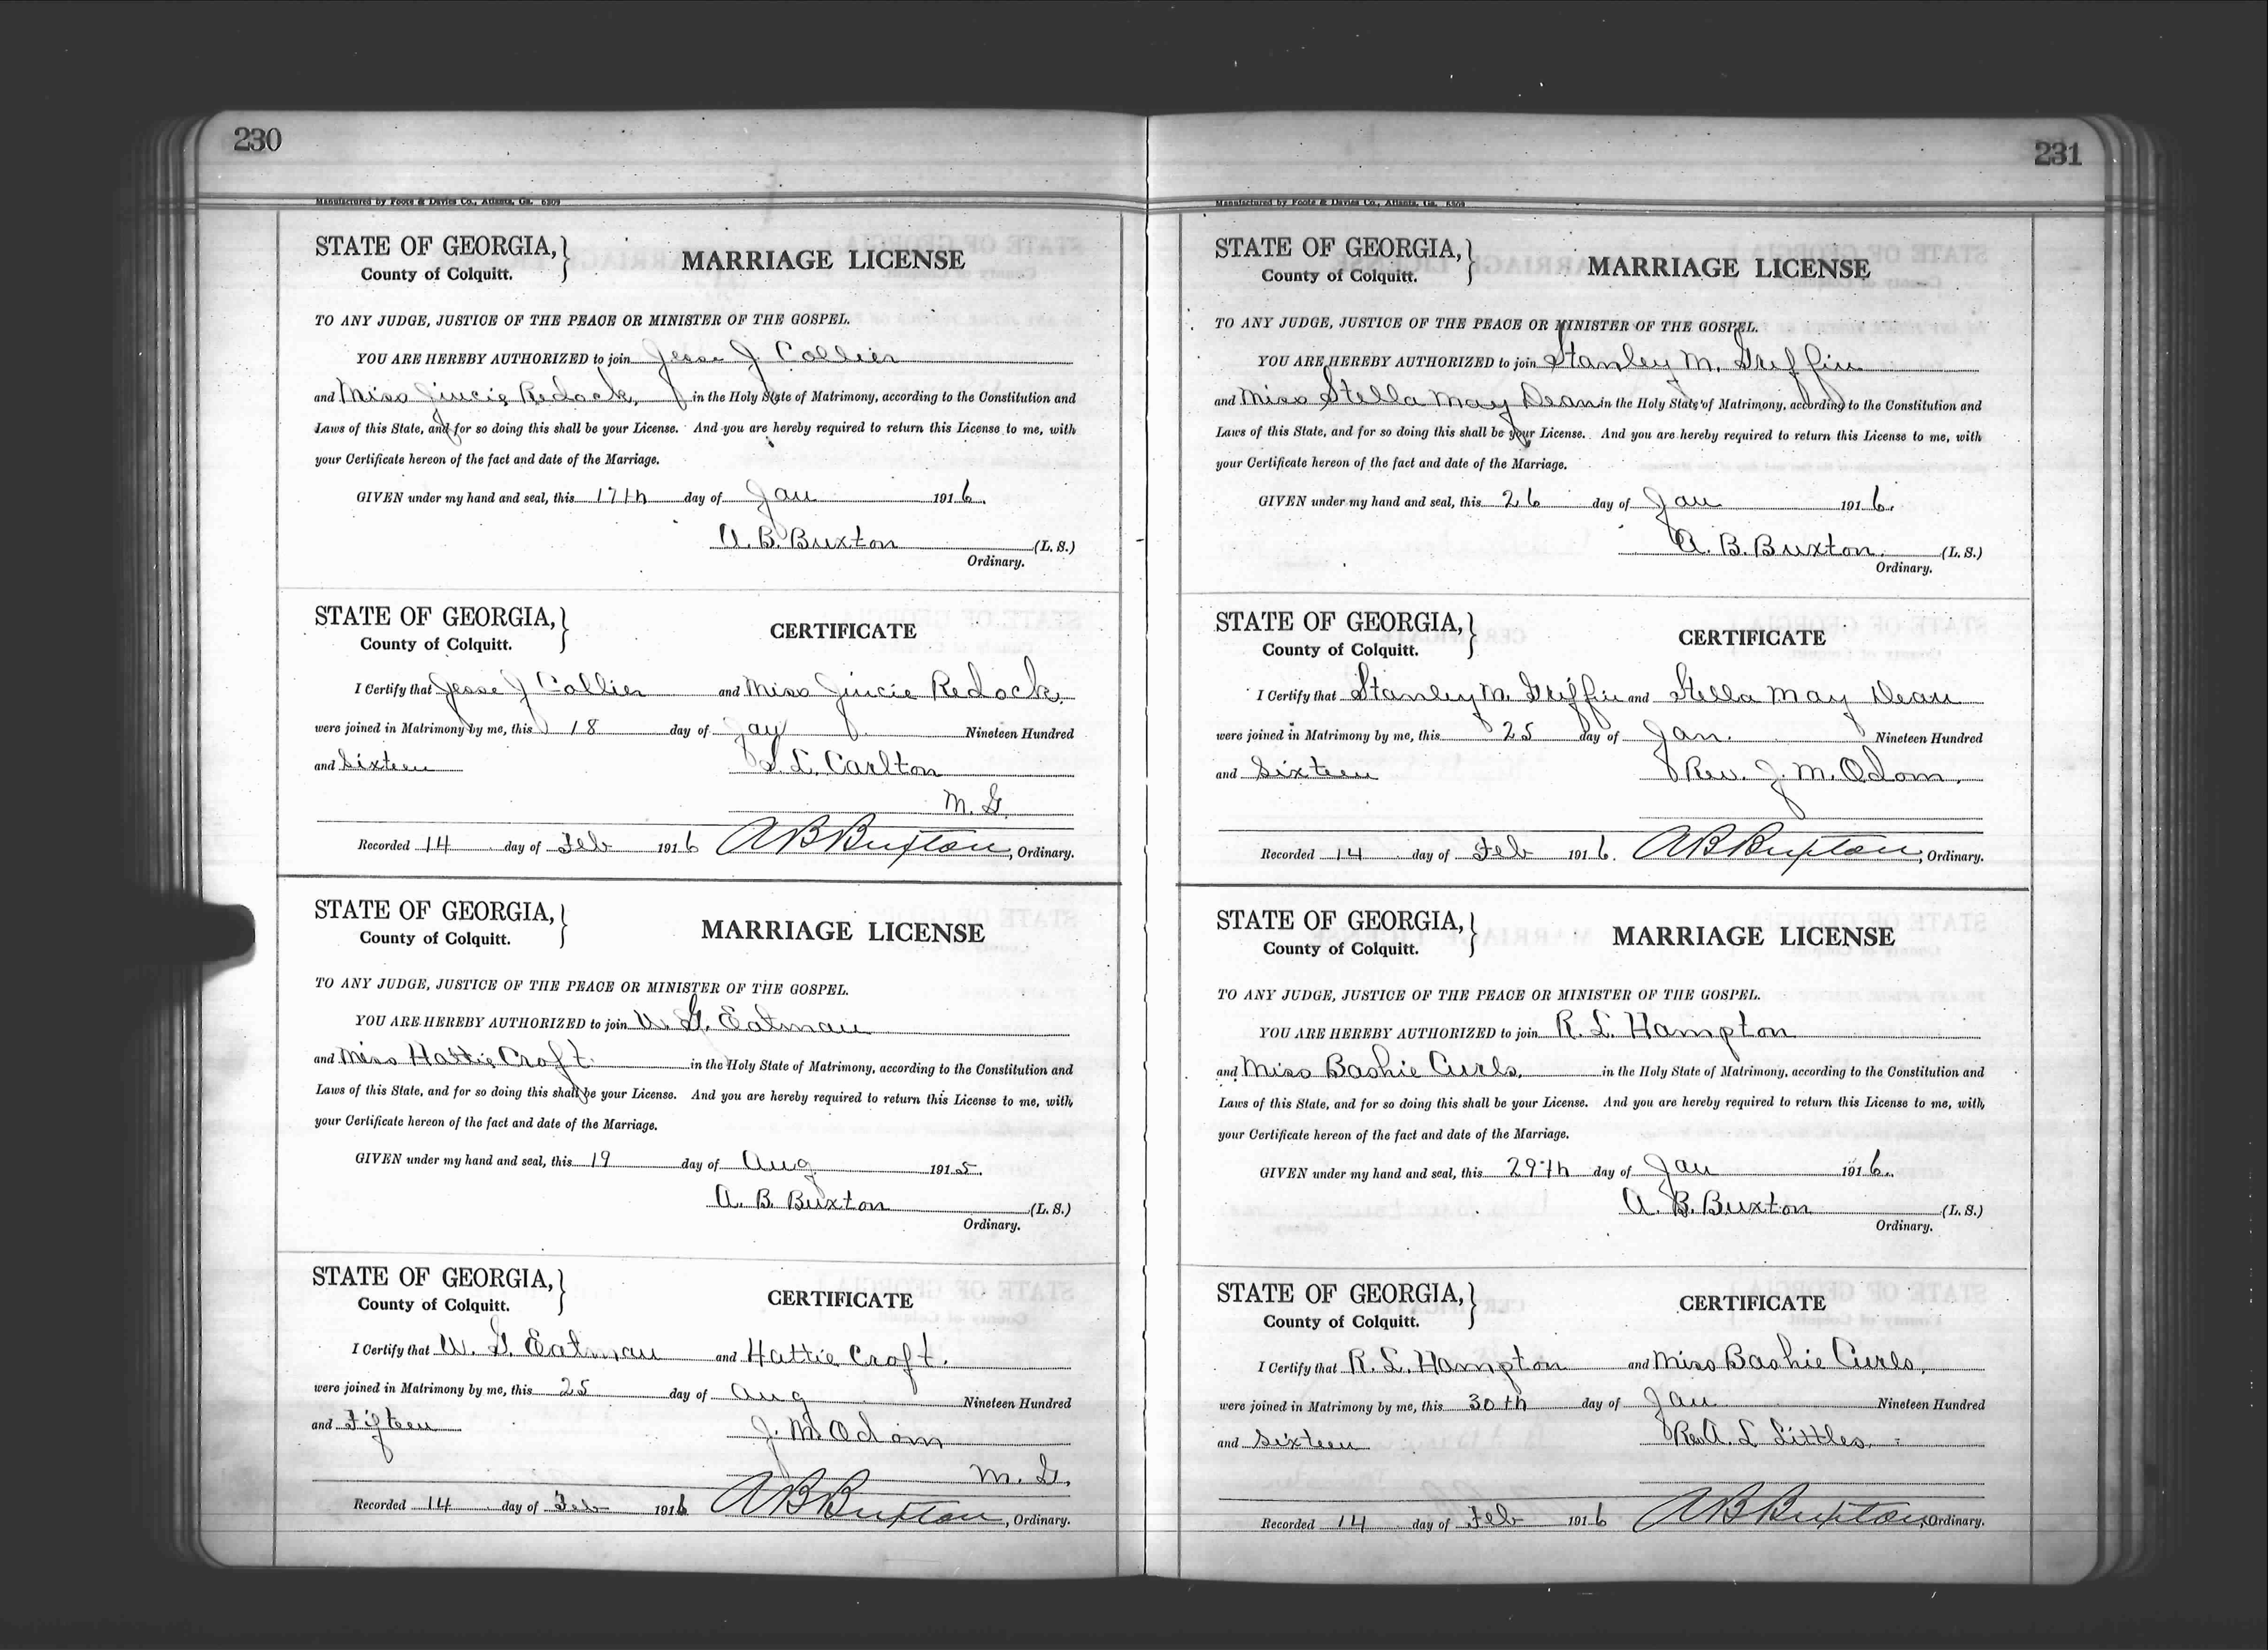 230
Manufactured by Foote & Davies Co., Atlanta, Ga. 6309
STATE OF GEORGIA,
County of Colquitt.
MARRIAGE LICENSE
TO ANY JUDGE, JUSTICE OF THE PEACE OR MINISTER OF THE GOSPEL.
YOU ARE HEREBY AUTHORIZED to join Jesse J. Collier
and Miss Jincie Redock, in the Holy State of Matrimony, according to the Constitution and
Laws of this State, and for so doing this shall be your License. And you are hereby required to return this License to me, with
your Certificate hereon of the fact and date of the Marriage.
GIVEN under my hand and seal, this 17th day of Jan 1916.
A. B. Buxton (L. S.)
Ordinary.
STATE OF GEORGIA,
County of Colquitt.
CERTIFICATE
I Certify that Jesse J Collier and Miss Jincie Redock.
were joined in Matrimony by me, this 18 day of Nineteen Hundred
and Sixteen L. Carlton
M. G.
Recorded 14 day of Feb 1916 A B Buxton, Ordinary.
STATE OF GEORGIA,
County of Colquitt.
MARRIAGE LICENSE
TO ANY JUDGE, JUSTICE OF THE PEACE OR MINISTER OF THE GOSPEL.
YOU ARE HEREBY AUTHORIZED to join W. G. Eatman
and Miss Hattie Croft. in the Holy State of Matrimony, according to the Constitution and
Laws of this State, and for so doing this shall be your License. And you are hereby required to return this License to me, with
your Certificate hereon of the fact and date of the Marriage.
GIVEN under my hand and seal, this 19 day of Aug 1915.
A. B. Buxton (L. S.)
Ordinary.
STATE OF GEORGIA,
County of Colquitt.
CERTIFICATE
I Certify that W. G. Eatman and Hattie Croft.
were joined in Matrimony by me, this 25 day of Aug Nineteen Hundred
and Fifteen J. M. Odom
M. G.
Recorded 14 day of Feb 1916 A B Buxton, Ordinary.
231
Manufactured by Foote & Davies Co., Atlanta, Ga. 6309
STATE OF GEORGIA,
County of Colquitt.
MARRIAGE LICENSE
TO ANY JUDGE, JUSTICE OF THE PEACE OR MINISTER OF THE GOSPEL.
YOU ARE HEREBY AUTHORIZED to join Stanley M. Griffin
and Miss Stella May Dean in the Holy State of Matrimony, according to the Constitution and
Laws of this State, and for so doing this shall be your License. And you are hereby required to return this License to me, with
your Certificate hereon of the fact and date of the Marriage.
GIVEN under my hand and seal, this 26 day of Jan 1916.
A. B. Buxton. (L. S.)
Ordinary.
STATE OF GEORGIA,
County of Colquitt.
CERTIFICATE
I Certify that Stanley M. Griffin and Stella May Dean
were joined in Matrimony by me, this 25 day of Jan. Nineteen Hundred
and Sixteen Rev. J. M. Odom.
Recorded 14 day of Feb 1916. A B Buxton, Ordinary.
STATE OF GEORGIA,
County of Colquitt.
MARRIAGE LICENSE
TO ANY JUDGE, JUSTICE OF THE PEACE OR MINISTER OF THE GOSPEL.
YOU ARE HEREBY AUTHORIZED to join R. L. Hampton
and Miss Bashie Curls. in the Holy State of Matrimony, according to the Constitution and
Laws of this State, and for so doing this shall be your License. And you are hereby required to return this License to me, with
your Certificate hereon of the fact and date of the Marriage.
GIVEN under my hand and seal, this 29th day of Jan 1916.
A. B. Buxton (L. S.)
Ordinary.
STATE OF GEORGIA,
County of Colquitt.
CERTIFICATE
I Certify that R. L. Hampton and Miss Bashie Curls.
were joined in Matrimony by me, this 30th day of Jan Nineteen Hundred
and Sixteen Rev A. L Littles.
Recorded 14 day of Feb 1916 A B Buxton, Ordinary.